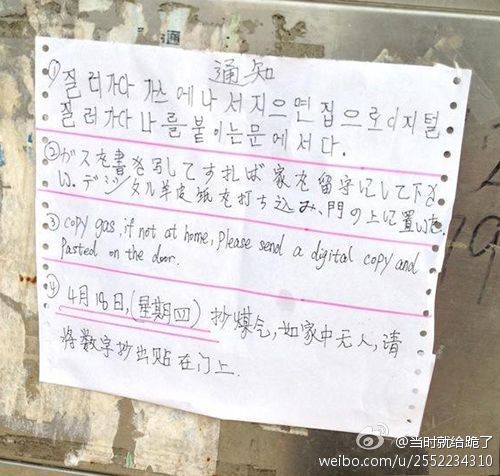 通知
① 질러가다 가스에나서지으면집으로디지털
질러가다나를붙이는문에서다.
② ガスを書を写してすれば家を留守にして下さ
い. デジタル羊皮紙を打ち込み、門の上に置いた.
③ copy gas, if not at home, please send a digital copy and
Pasted on the door.
④ 4月18日,(星期四) 抄煤气,如家中无人,请
将数字抄出贴在门上.
@当时就给跪了
weibo.com/u/2552234310